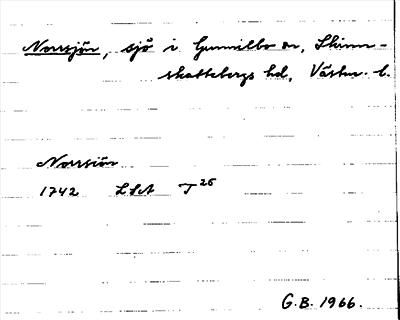 Norrsjön, sjö i Gunnilbo sn, Skinn-
skattebergs hd, Västm. l.
Norrsiön
1742 LSA T 26
G.B. 1966.